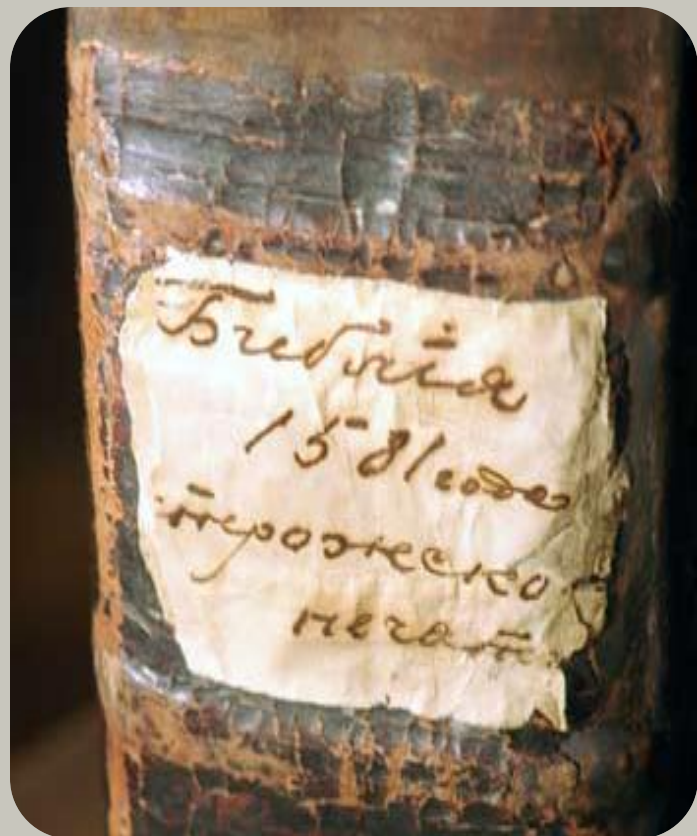 Библія
1581 года
трожско
печат